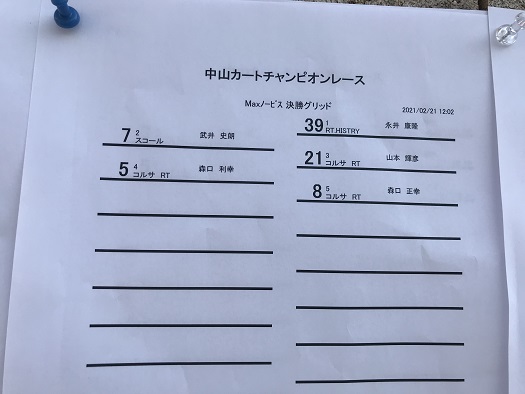 中山カートチャンピオンレース
Maxノービス 決勝グリッド
2021/02/21 12:02
39 1 RT.HISTRY 永井 康隆
7 2 スコール 武井 史朗
21 3 コルサ RT 山本 輝彦
5 4 コルサ RT 森口 利幸
8 5 コルサ RT 森口 正幸